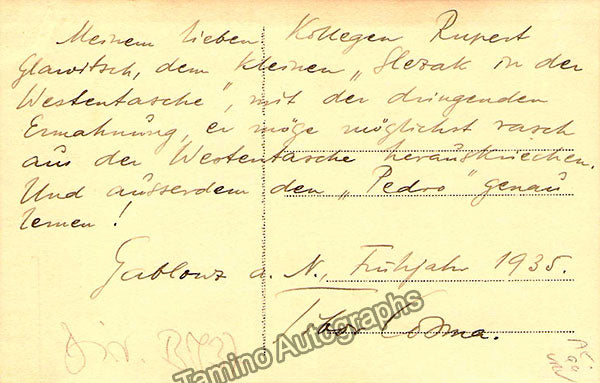 Meinem lieben Kollegen Rupert
Glawitsch, dem kleinen „Slezak in der
Westentasche", mit der dringenden
Ermahnung, er möge möglichst rasch
aus der Westentasche herauskriechen.
Und ausserdem den „Pedro" genau
lernen!
Gablonz a. N., Frühjahr 1935.
Kosma.
Dir.
Tamino Autographs